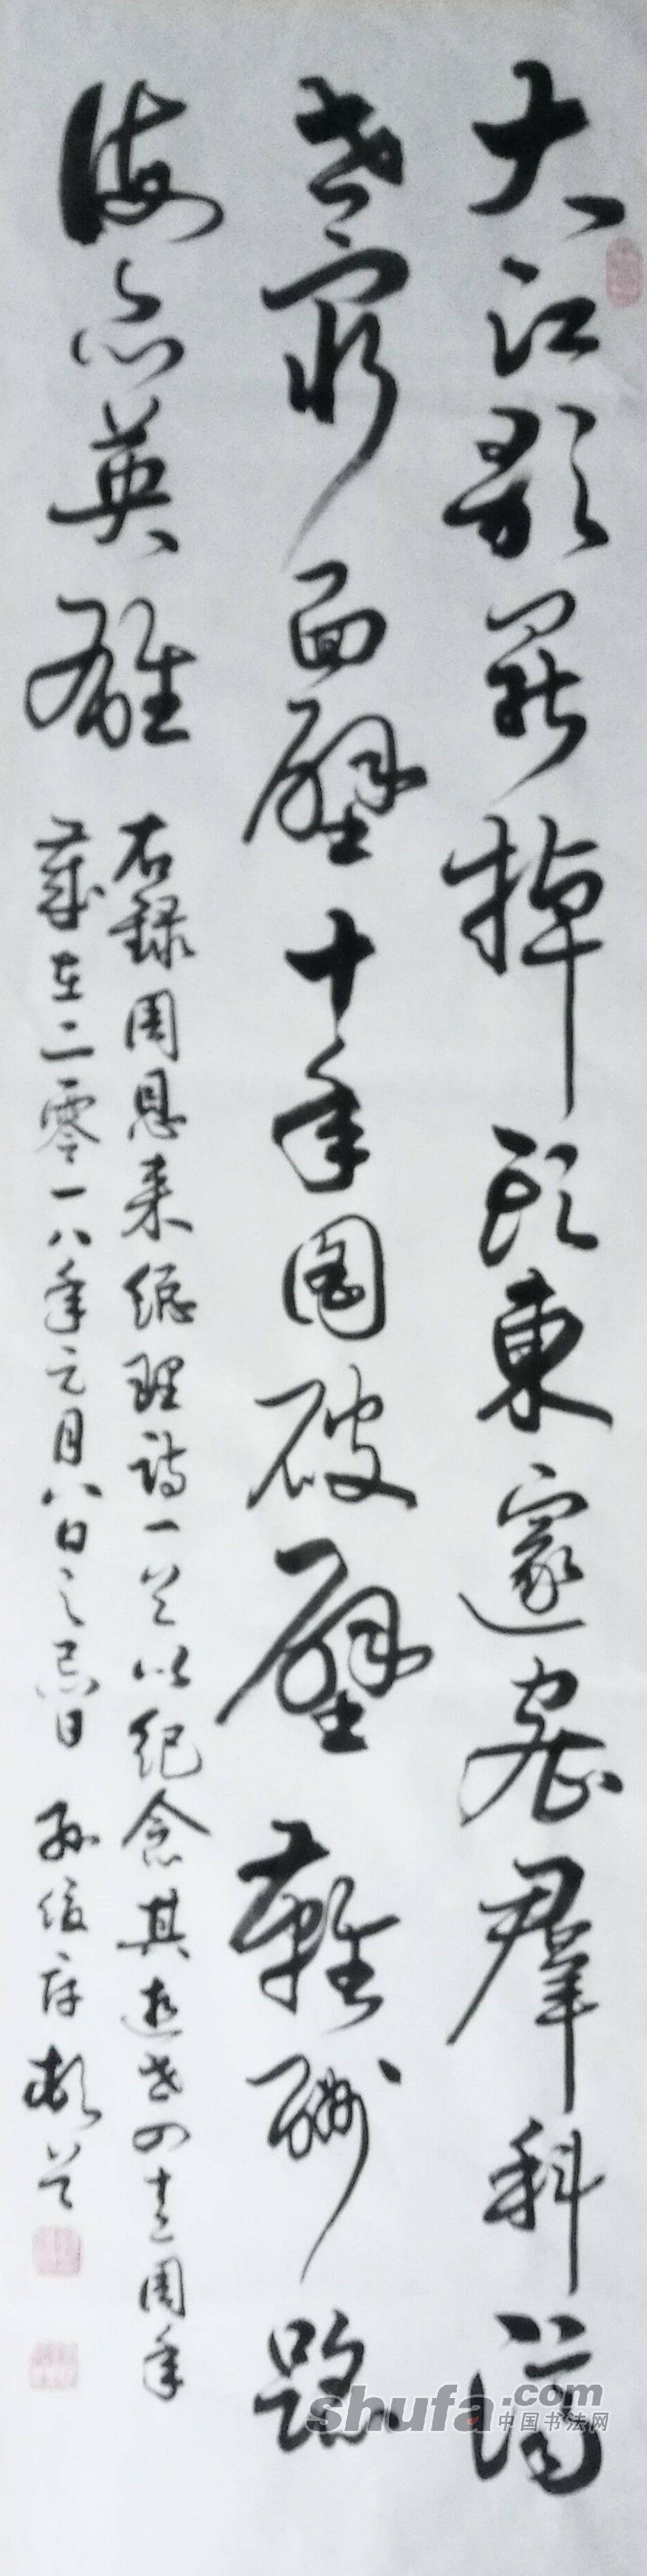 大江歌罷掉頭東邃密群科濟
世窮面壁十年圖破壁難酬蹈
海亦英雄
右録周恩来總理詩一首以纪念其逝世四十二周年
歲在二零一八年元月八日之忌日 孙
shufa.com
中国书法网